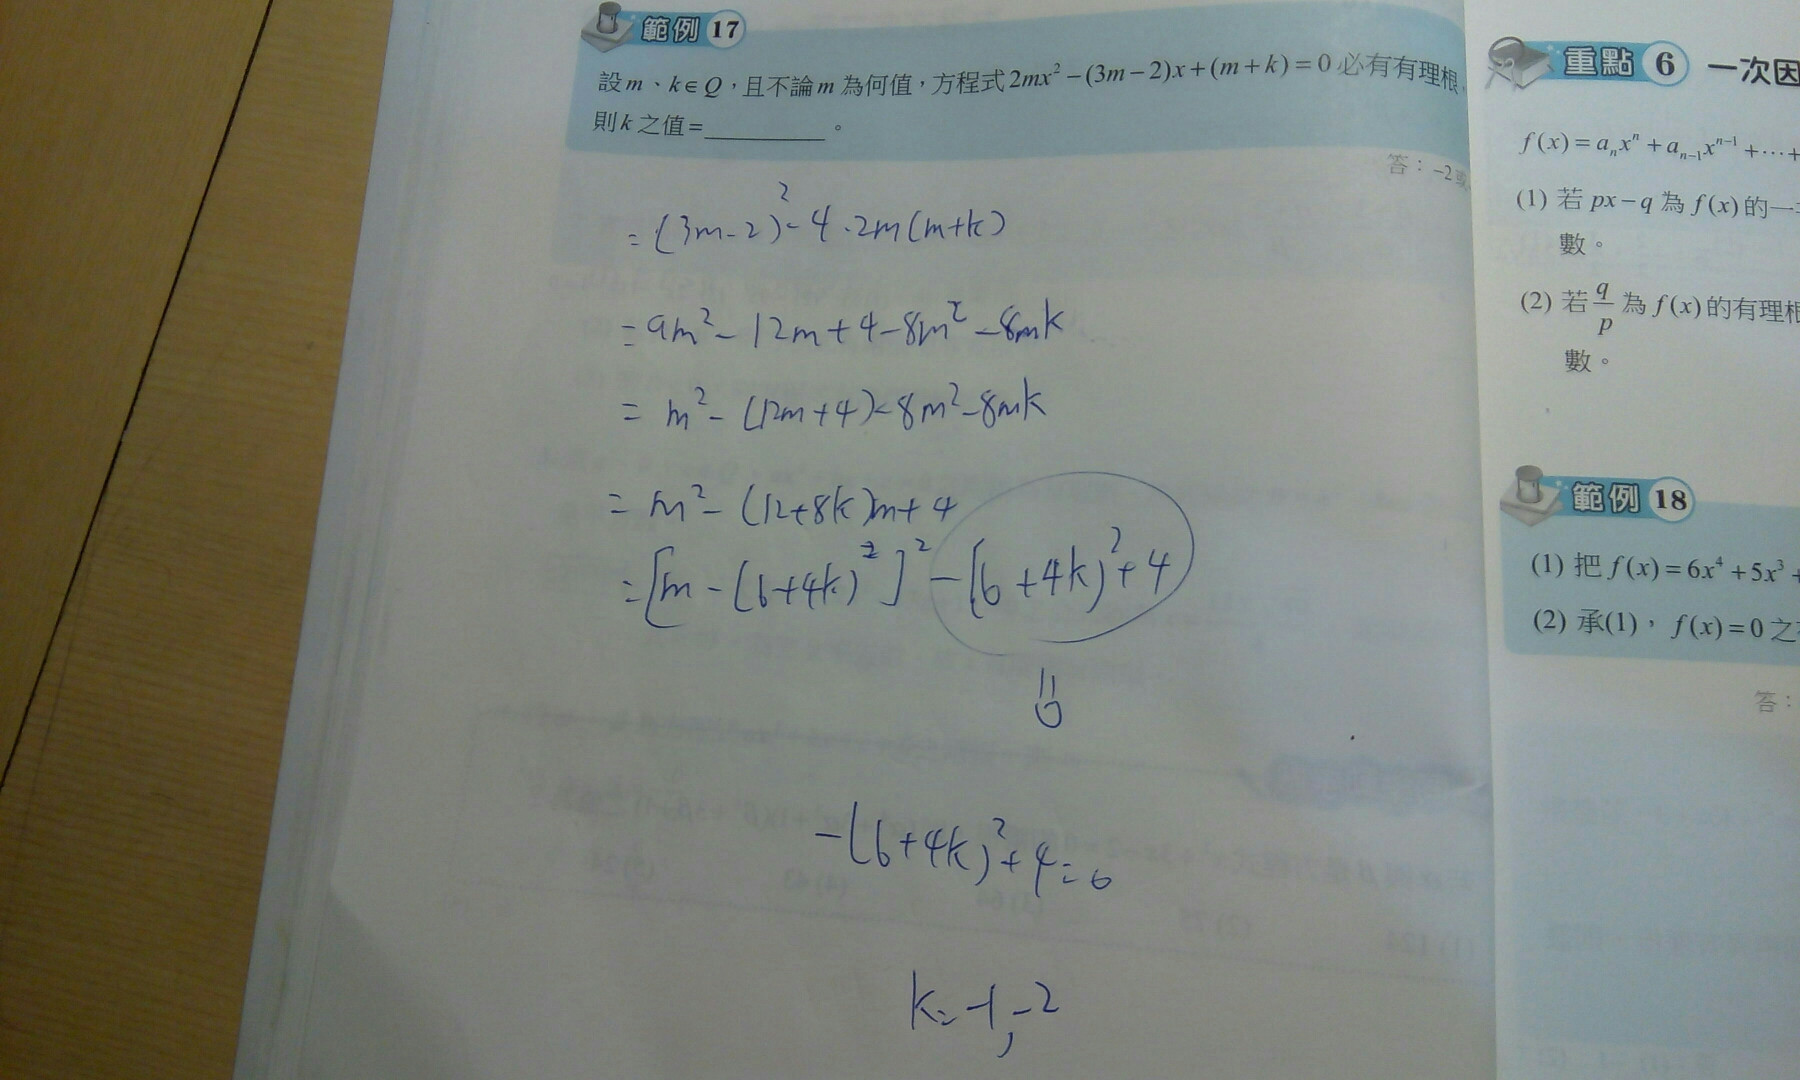 範例 17
設 m、k∈Q，且不論 m 為何值，方程式 2mx²−(3m−2)x+(m+k)=0 必有有理根，
則 k 之值=__________。
答：−2或
= (3m-2)² - 4·2m(m+k)
= 9m² - 12m + 4 - 8m² - 8mk
= m² - (12m+4) - 8m² - 8mk
= m² - (12+8k)m + 4
= [m - (6+4k)²]² - (6+4k)² + 4
= 0
-(6+4k)² + 4 = 0
k = -1, -2
重點 6 一次因
f(x)=aₙxⁿ+aₙ₋₁xⁿ⁻¹+⋯+
(1) 若 px−q 為 f(x) 的一
數。
(2) 若 q/p 為 f(x) 的有理根
數。
範例 18
(1) 把 f(x)=6x⁴+5x³+
(2) 承(1)，f(x)=0 之
答：